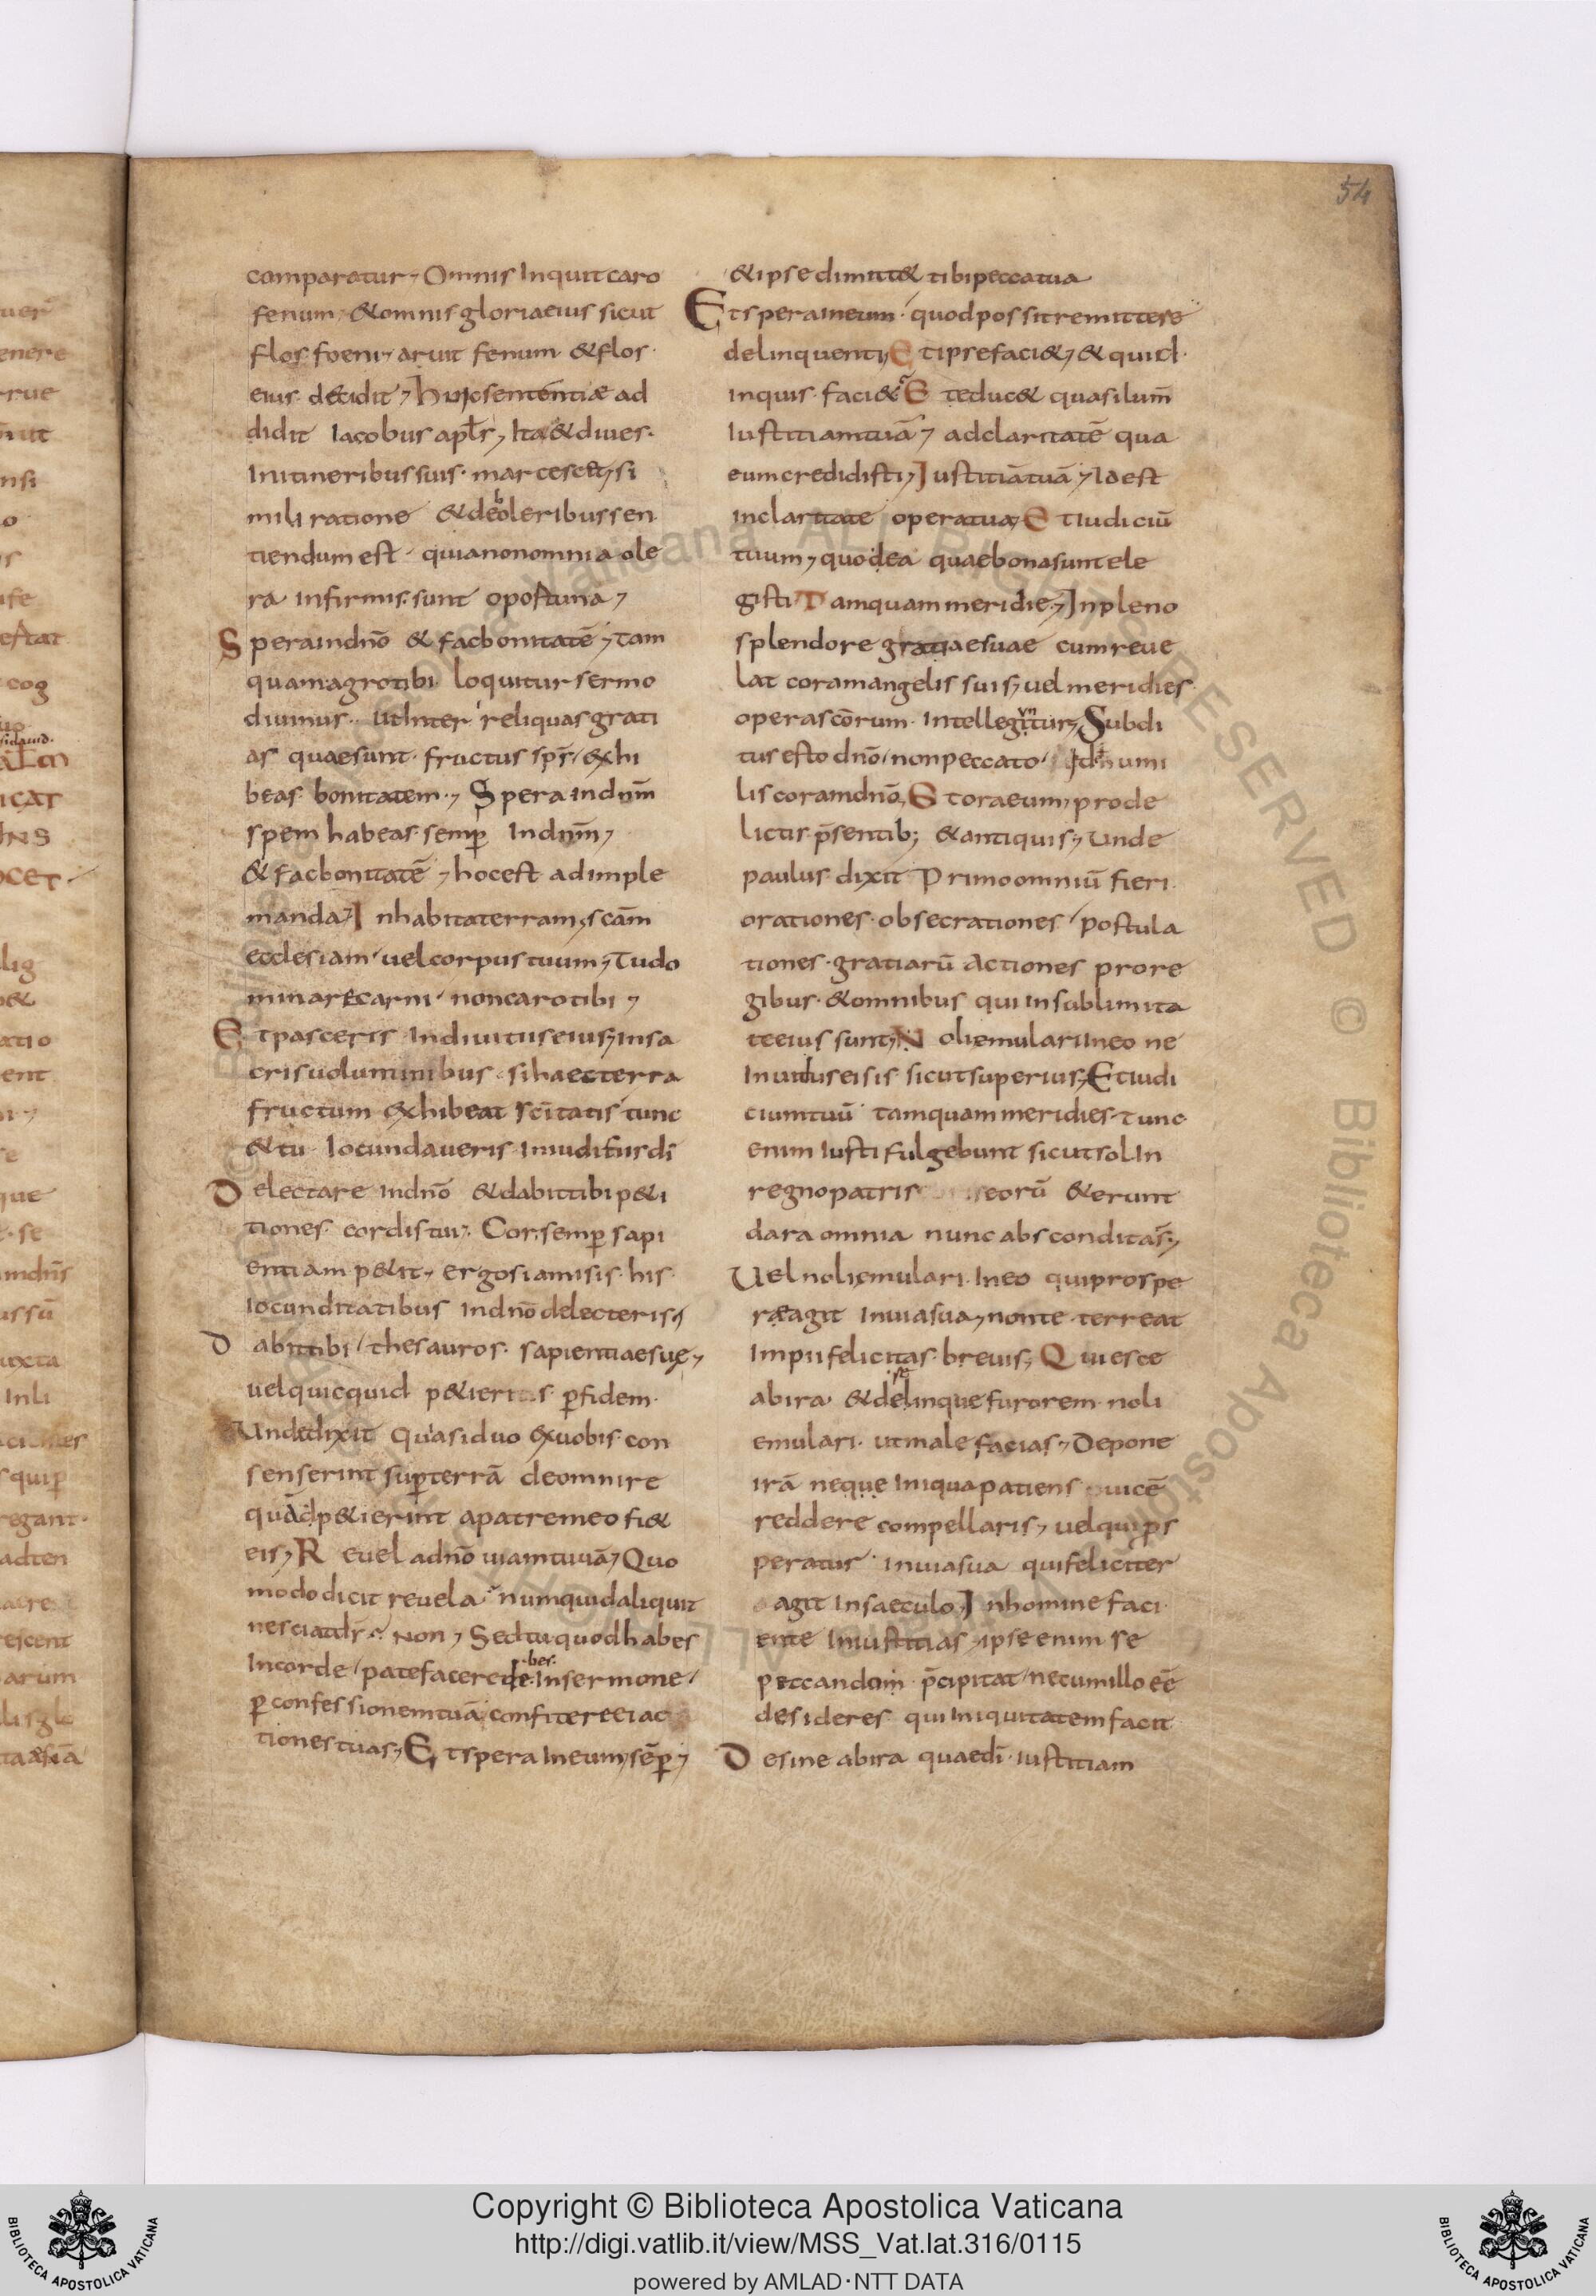 54
comparatur, Omnis Inquit caro
fenum, & omnis gloria eius sicut
flos foeni, aruit fenum & flos
eius decidit, huic sententiae ad
didit Iacobus apls, Ita & diues
Initineribus suis marcescet, si
mili ratione & de oleribus sen
tiendum est quia non omnia ole
ra infirmis sunt oportuna,
Spera indno & fac bonitatē, Tam
quam agrotibi loquitur sermo
diuinus ut inter reliquas grati
as quae sunt fructus sps, exhi
beas bonitatem, Spera indnm
spem habeas semp Indnm,
& fac bonitatē, hoc est adimple
manda, Inhabita terram, scam
ecclesiam uel corpus tuum, Tu do
minare carni non caro tibi,
Et pasceris Indiuitiis eius, Insa
cris uoluminibus si haec terra
fructum exhibeat scitatis tunc
& tu Iocundaueris
Delectare indno & dabit tibi p&i
tiones cordis tui, Cor semp sapi
entiam p&it, ergo si amisis his
Iocunditatibus Indno delecteris,
Dabit tibi thesauros sapientiae sue,
uel quicquid p& p fidem
Unde dixit Quasi duo exuobis con
senserint sup terrā de omni re
quā p&ierint apatre meo fi&
eis, Reuel adno uiam tuuā, Quo
modo dicit reuela numquid aliquit
nesciat dr̄ Non, Sed tu quod habes
Incorde patefacere debes Insermone
p confessionem tuā confitere ei ac
tiones tuas, Et spera Ineum, sēp,
& ipse dimitt& tibi peccatua
Et spera ineum quod possit remittere
delinquenti, Et ipse faci&, & quid
inquis faci& Et educ& quasi lum̄
Iustitiam tuā, ad claritatē qua
eum credidisti, Iustitiā tuā, Id est
Inclaritate opera tua, Et Iudiciū
tuum, quod ea quae bona sunt ele
gisti, Tamquam meridie, Inpleno
splendore gratiae suae cum reue
lat coram angelis suis, uel meridies
opera scōrum Intelleguntur, Subdi
tus esto dnō, non peccato, Id humi
lis coram dnō, Et ora eum, pro de
lictis p̄sentib; & antiquis, Unde
paulus dixit Primo omniū fieri
orationes obsecrationes postula
tiones gratiarū Actiones pro re
gibus & omnibus qui in sublimita
te eius sunt, Noli emulari Ineo ne
Inuidus eis sis sicut superius, Et Iudi
cium tuū tamquam meridies Tunc
enim Iusti fulgebunt sicut sol In
regno patris eorū & erunt
clara omnia nunc abscondita s̄,
Uel noli emulari Ineo qui prospe
rae agit Inuia sua, non te terreat
Impii felicitas breuis, Quiesce
abira & delinque furorem noli
emulari ut male facias, Depone
irā neque Iniqua patiens uicē
reddere compellaris, uel qui ps
peratur Inuia sua qui feliciter
agit Insaeculo, Inhomine faci
ente Iniustitias, ipse enim se
peccandum p̄cipitat, nec cum illo eē
desideres qui Iniquitatem facit
Desine abira quae dī Iustitiam
Copyright © Biblioteca Apostolica Vaticana
http://digi.vatlib.it/view/MSS_Vat.lat.316/0115
powered by AMLAD·NTT DATA
BIBLIOTECA APOSTOLICA VATICANA
BIBLIOTECA APOSTOLICA VATICANA